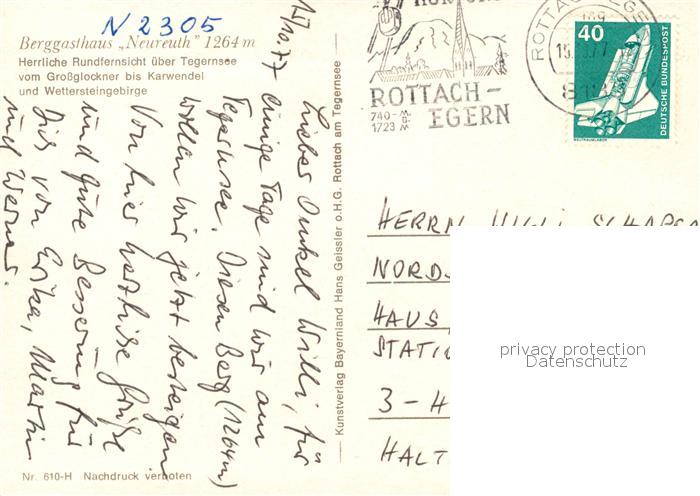 N 2305
Berggasthaus „Neureuth" 1264 m
Herrliche Rundfernsicht über Tegernsee
vom Großglockner bis Karwendel
und Wettersteingebirge
15/10.77
Lieber Onkel Willi, für
einige Tage sind wir am
Tegernsee. Diesen Berg (1264m)
wollen wir jetzt besteigen
Von hier herzliche Grüße
und gute Besserung für
Dich von Erika, Martin
und Werner.
Nr. 610-H Nachdruck verboten
Kunstverlag Bayernland Hans Geissler o.H.G. Rottach am Tegernsee
ROTTACH-
EGERN
740-
1723
ROTTACH-EGERN
40
DEUTSCHE BUNDESPOST
WELTRAUMLABOR
HERRN
NORDS
HAUS,
STATIO
3-H
HALT
privacy protection
Datenschutz